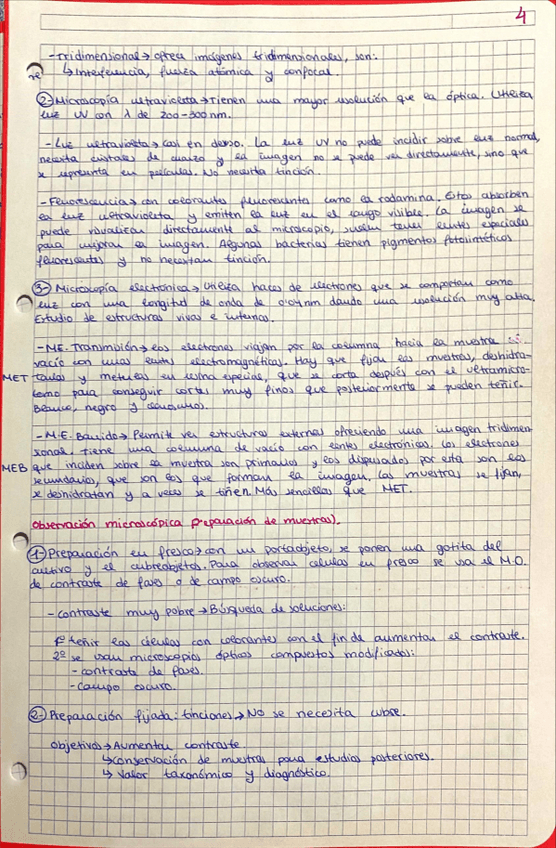 4
-Tridimensional→ofrea imágenes tridimensionales, son:
↳Interferencia, fuerza atómica y confocal.
②-Microscopía ultravioleta→Tienen una mayor resolución que la óptica. Utiliza
luz UV con λ de 200-300nm.
-Luz ultravioleta→casi en desuso. La luz UV no puede incidir sobre luz normal,
necesita cristales de cuarzo y la imagen no se puede ver directamente, sino que
se representa en películas. No necesita tinción.
-Fluorescencia→con colorantes fluorescentes como la rodamina. Estos absorben
la luz ultravioleta y emiten la luz en el rango visible. La imagen se
puede visualizar directamente al microscopio, suelen tener lentes especiales
para mejorar la imagen. Algunas bacterias tienen pigmentos fotosintéticos
fluorescentes y no necesitan tinción.
③-Microscopía electrónica→Utiliza haces de electrones que se comportan como
luz con una longitud de onda de 0'04nm dando una resolución muy alta.
Estudio de estructuras vivas e internas.
-M.E. Transmisión→los electrones viajan por la columna hacia la muestra
vacío con unas lentes electromagnéticas. Hay que fijar las muestras, deshidra-
MET tarlas y meterlas en resina especial, que se corta después con el ultramicro-
tomo para conseguir cortes muy finos que posteriormente se pueden teñir.
Blanco, negro y claroscuros.
-M.E. Barrido→Permite ver estructuras externas ofreciendo una imagen tridimen-
sional, tiene una columna de vacío con lentes electrónicas. Los electrones
MEB que inciden sobre la muestra son primarios y los dispersados por esta son los
secundarios, que son los que forman la imagen. Las muestras se fijan,
se deshidratan y a veces se tiñen. Más sencillas que MET.
Observación microscópica preparación de muestras).
①-Preparación en fresco→con un portaobjeto, se ponen una gotita del
cultivo y el cubreobjetos. Para observar células en fresco se usa el M.O.
de contraste de fases o de campo oscuro.
-Contraste muy pobre→Búsqueda de soluciones:
1º teñir las células con colorantes con el fin de aumentar el contraste.
2º se usan microscopios ópticos compuestos modificados:
-contraste de fases.
-Campo oscuro.
②-Preparación fijada: tinciones→No se necesita cubre.
Objetivos→Aumentar contraste.
↳Conservación de muestras para estudios posteriores.
↳Valor taxonómico y diagnóstico.